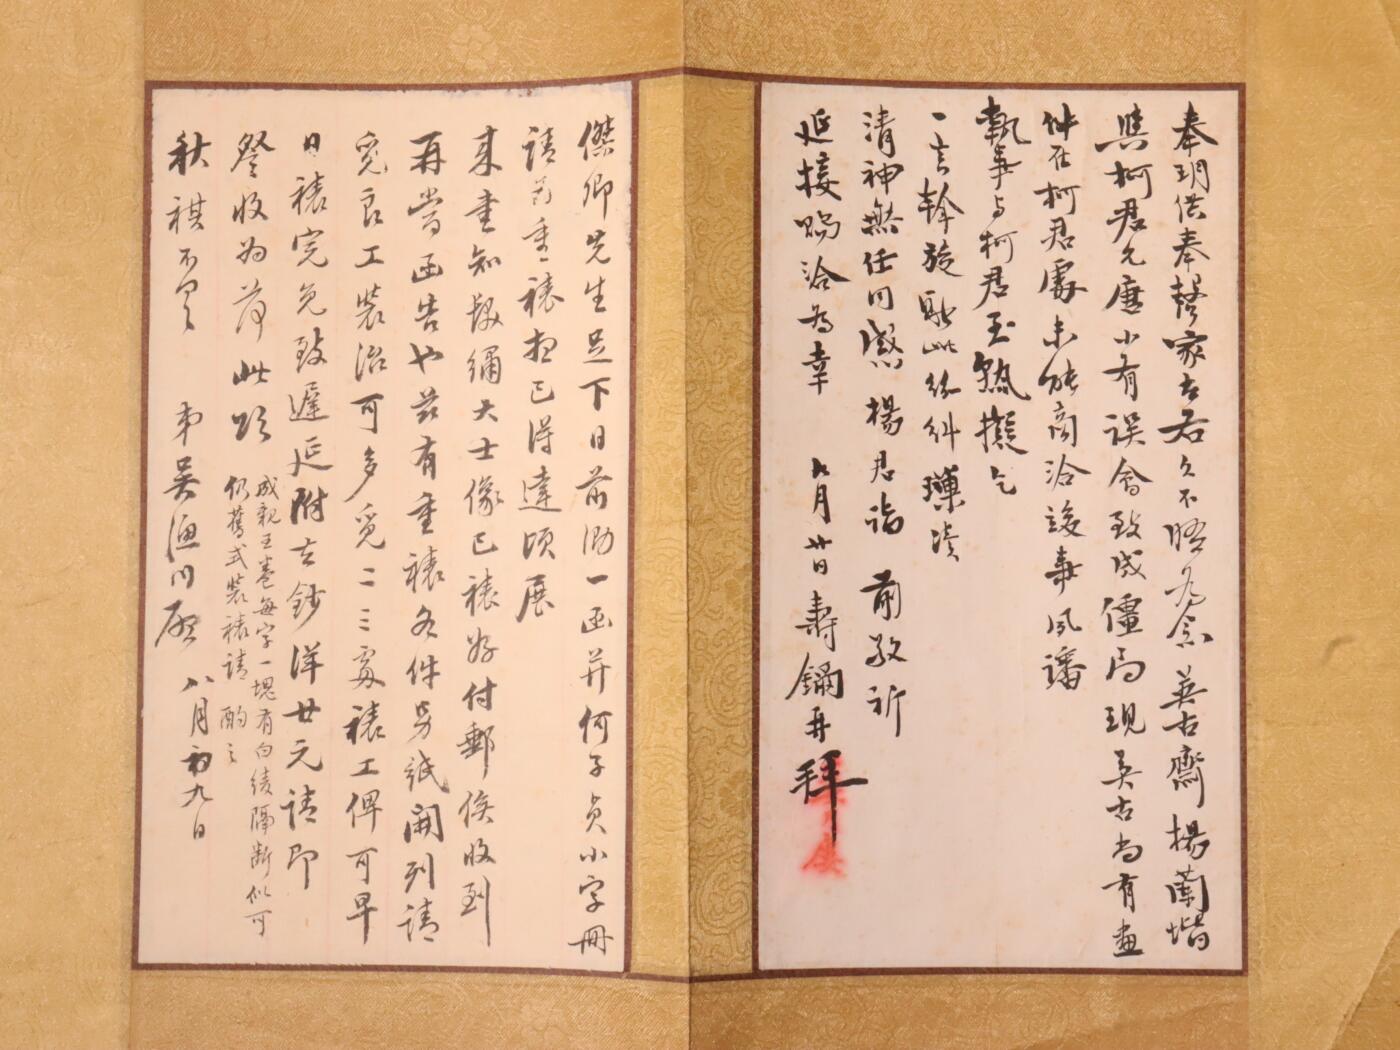 奉玥供奉馨家古右久不晤为念英古齋楊蘭堦
與柯君允廉小有誤會致成僵局現英古尚有畫
件在柯君處未能商洽竣事夙諗
執事与柯君至熟擬乞
一言斡旋耿此紛糾瑣瀆
清神無任同感楊君詣前敬祈
延接賜洽為幸 九月廿日 壽鏞再拜
傑卿先生足下日前泐一函并何子貞小字冊
請为重裱想已得達頃展
來書知撥繃大士像已裱好付郵俟收到
再當函告也茲有重裱各件另紙開列請
覓良工裝治可多覓二三家裱工俾可早
日裱完免致遲延附去鈔洋廿元請即
詧收为荷此頌
秋祺不具 弟吳漁川啟 八月初九日
成親王卷每字一塊有白綾隔斷似可
仍舊式裝裱請酌之